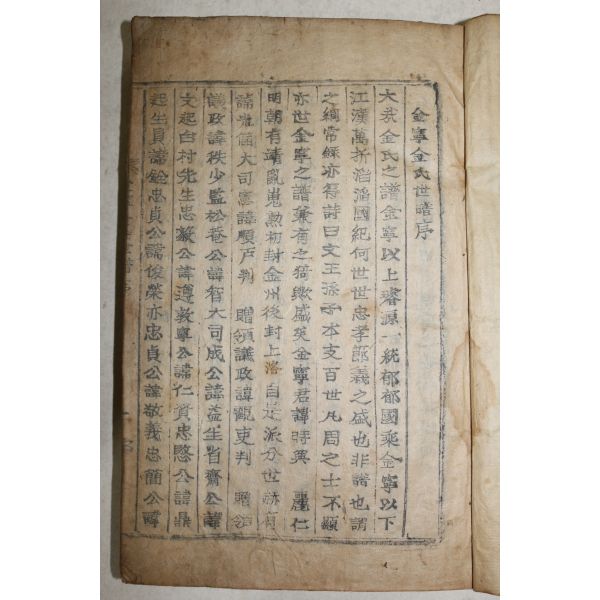 金寧金氏世譜序
大哉金氏之譜金寧以上璿源一統郁郁國乘金寧以下
江漢萬折滔滔國紀何世世忠孝節義之盛也非譜也謂
之綱常綵亦得詩曰文王孫子本支百世凡周之士不顯
亦世金寧之譜兼有之猗歟盛矣金寧君諱時興 麗仁
明朝有靖亂嵬勲初封金州後封上洛自是派分世赫有
諱光儲大司憲諱順戶判 贈領議政諱觀吏判 贈領
議政諱秩少監松菴公諱智大司成公諱益生省齋公諱
文起白村先生忠毅公諱遵敎寧公諱仁賀忠愍公諱鼎
起生員諱銓忠貞公諱俊榮亦忠貞公諱敬義忠簡公諱